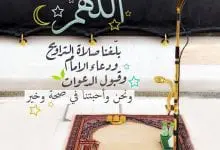 اللهم
بلغنا صلاة التراويح
ودعاء الإمام
وقبول الدعوات
ونحن وأحبتنا في صحة وخير